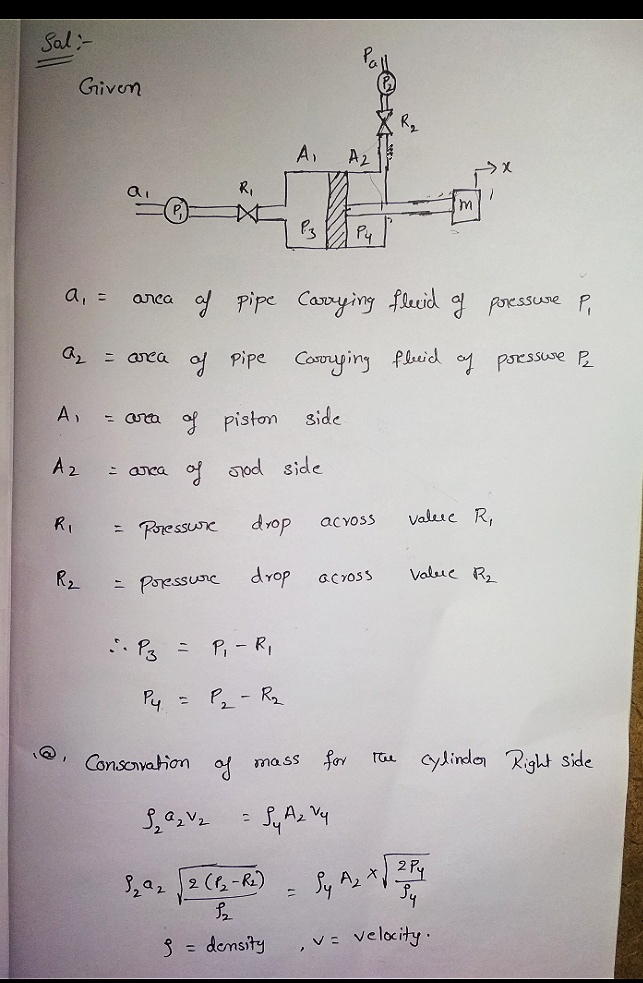 Sol:-
Given
Pa
P2
R2
A1 A2
x
a1 P1 R1
P3 P4
m
a1 = area of pipe Carrying fluid of pressure P1
a2 = area of pipe Carrying fluid of pressure P2
A1 = area of piston side
A2 = area of rod side
R1 = Pressure drop across value R1
R2 = pressure drop across value R2
∴ P3 = P1 - R1
P4 = P2 - R2
(a). Conservation of mass for the cylinder Right side
ρ2 a2 v2 = ρ4 A2 v4
ρ2 a2 √(2(P2-R2)/ρ2) = ρ4 A2 × √(2P4/ρ4)
ρ = density , v = velocity.